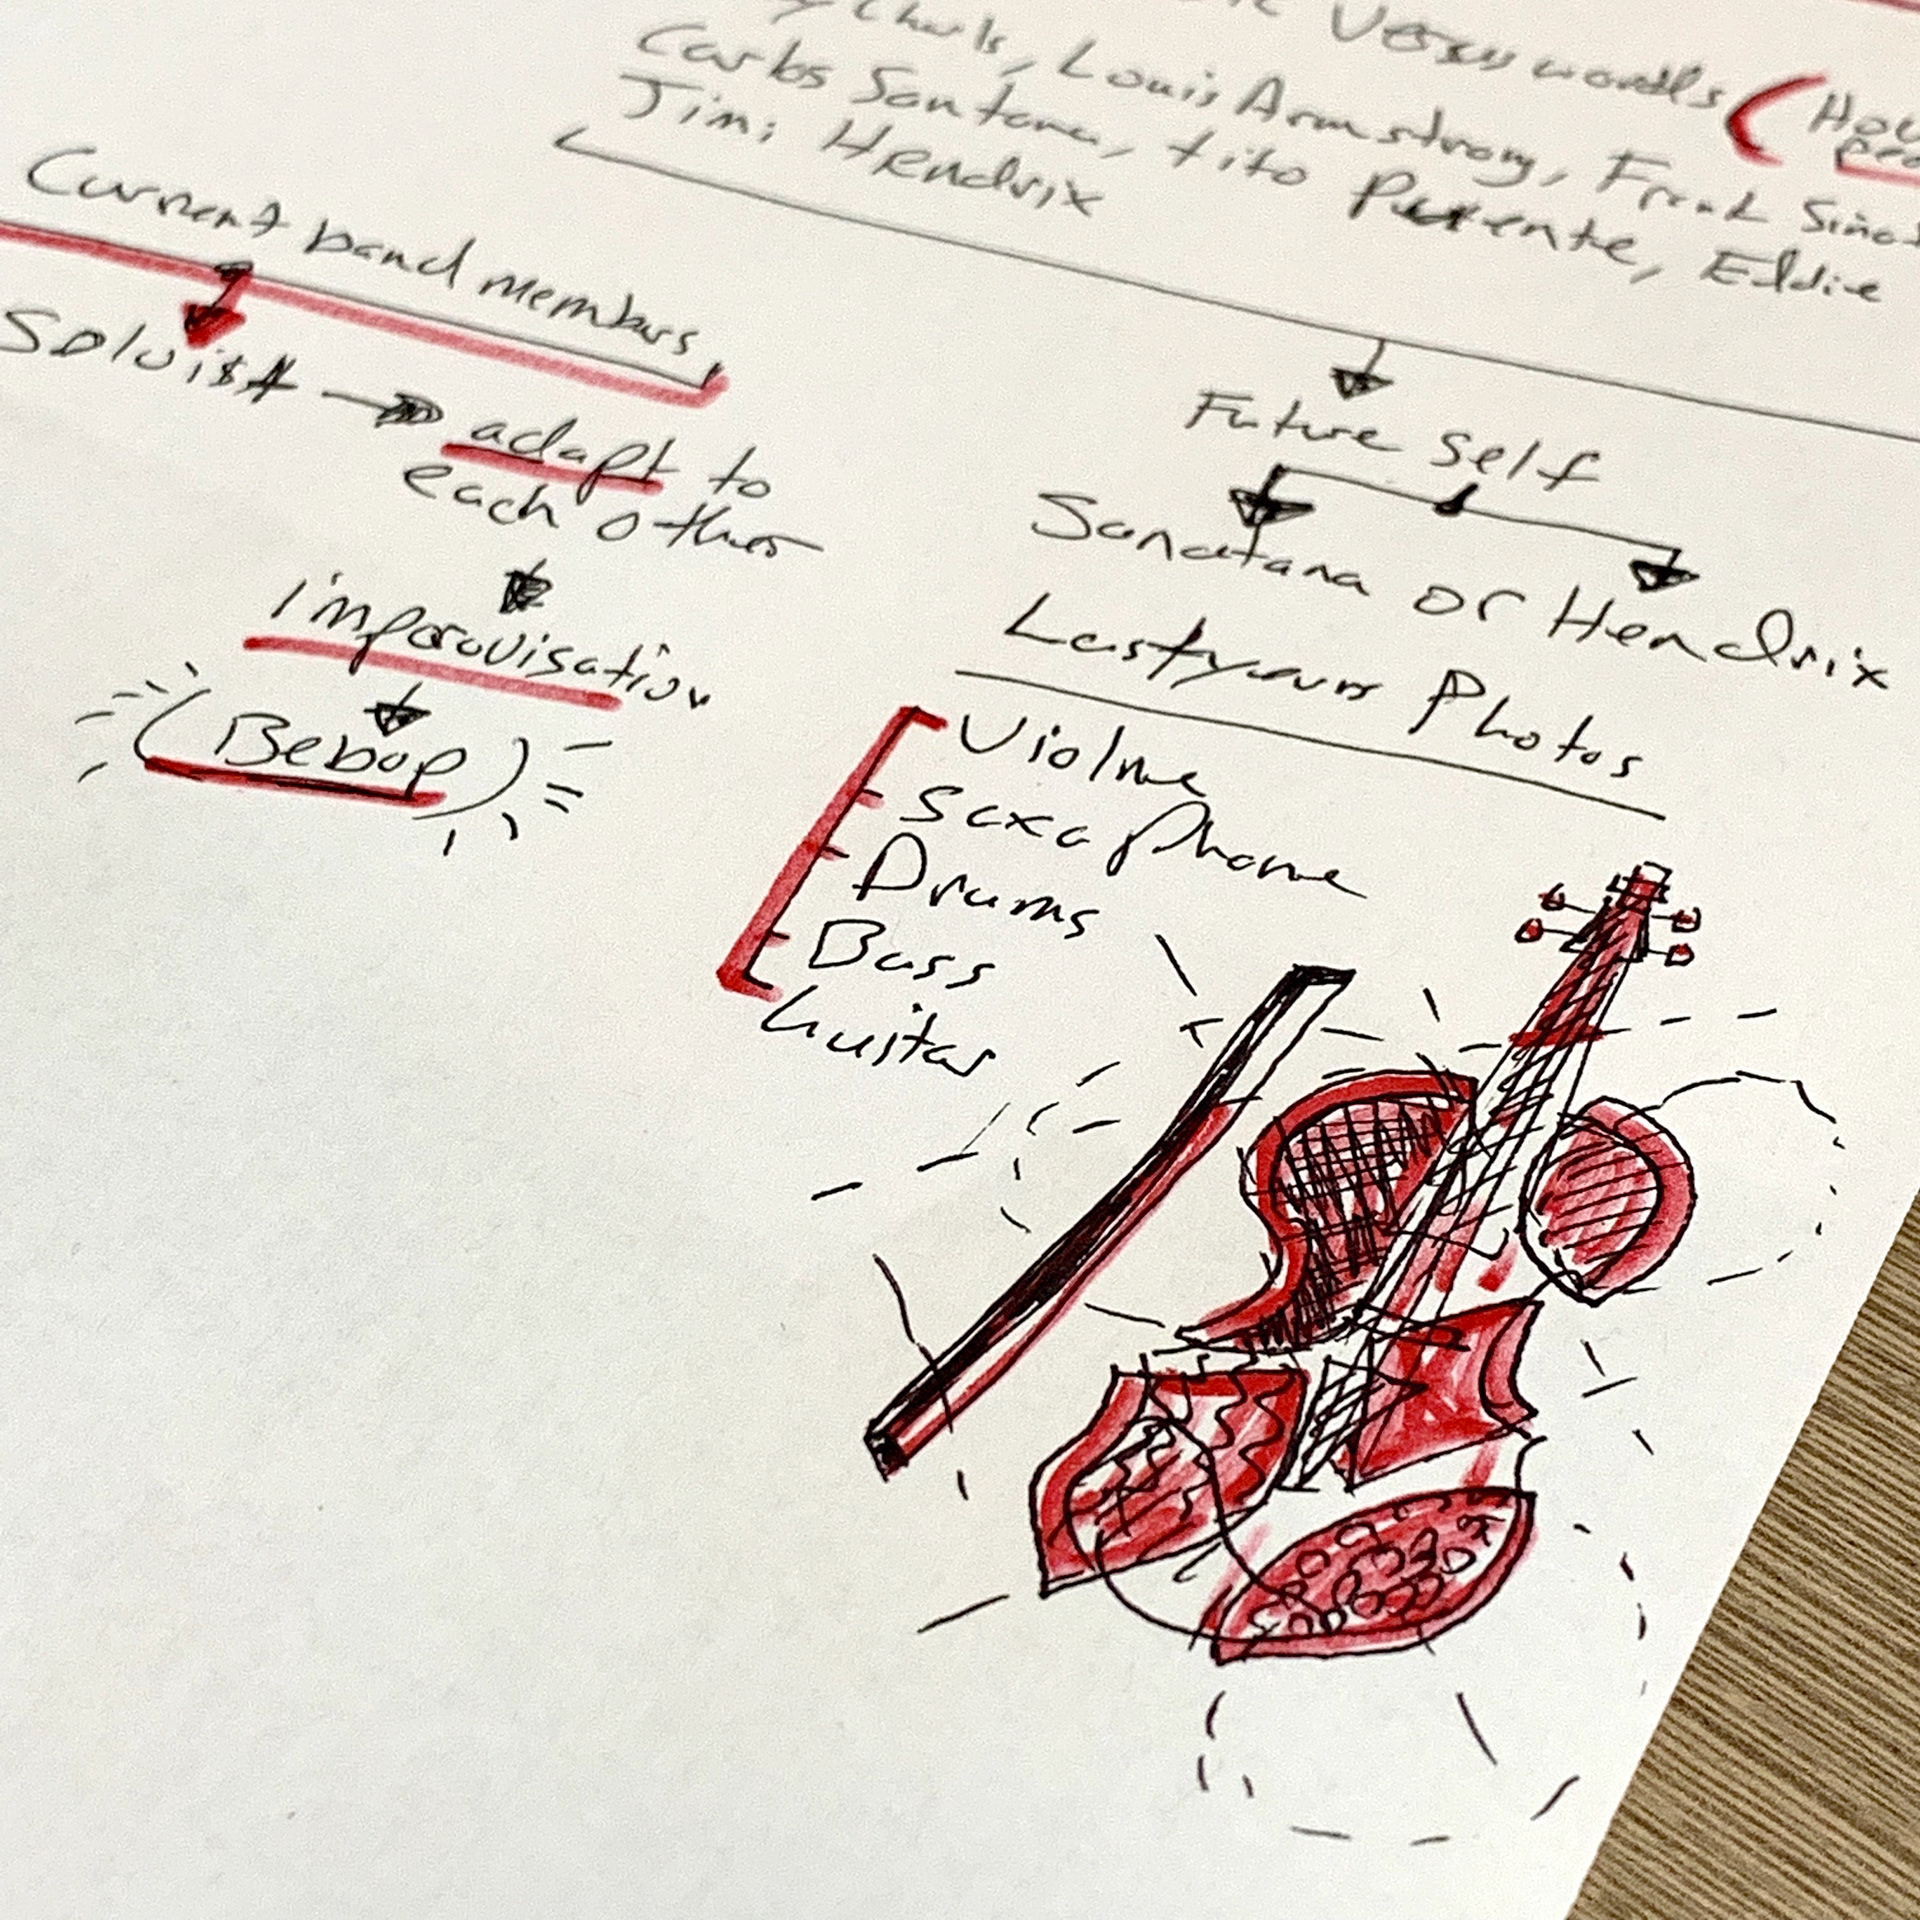 Versus words (Hou
Charls, Louis Armstrong, Frank Sina
Carlos Santana, tito Puente, Eddie
Jimi Hendrix
Current band members
Soluist → adapt to
each other
improvisation
(Bebop)
Future self
Sanatana or Hendrix
Lastyears Photos
Violine
Saxaphone
Drums
Bass
Guitar